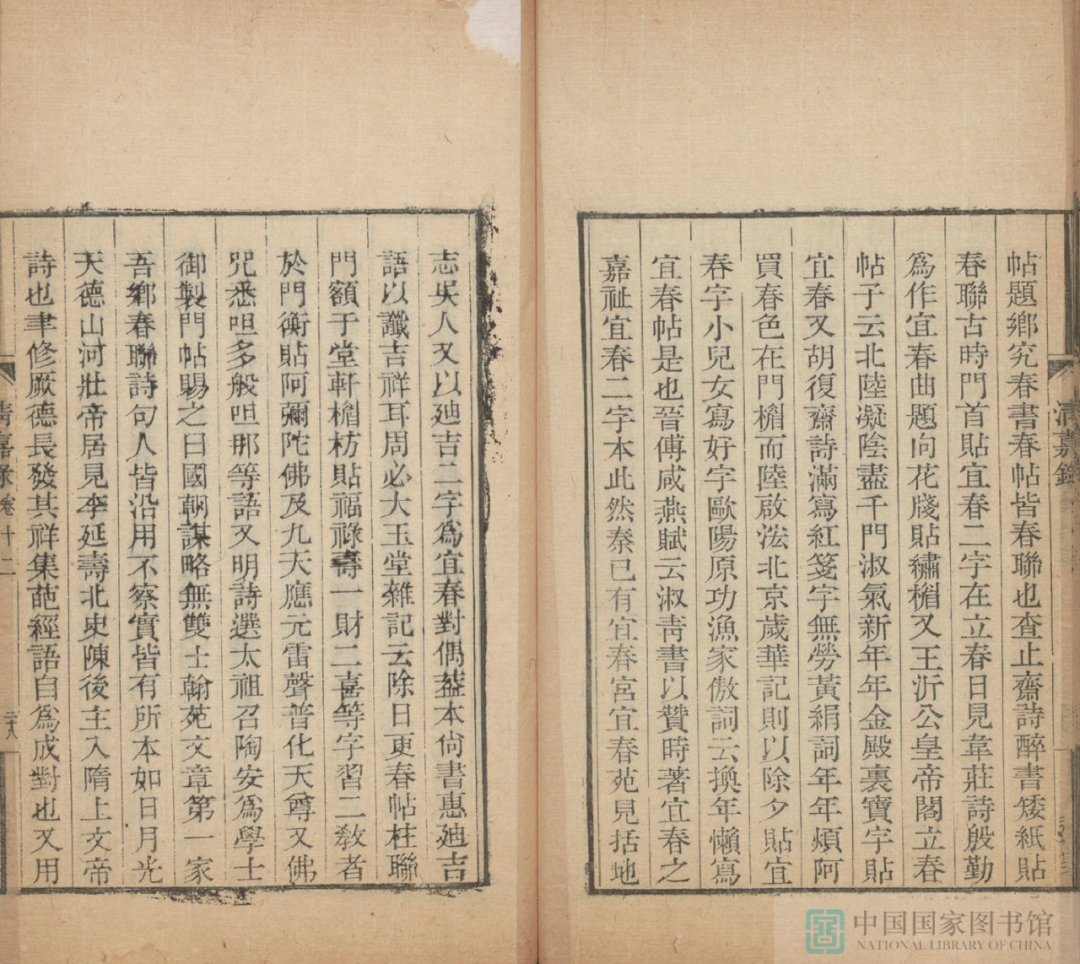 帖題鄉究春書春帖皆春聯也查止齋詩醉書矮紙貼
春聯古時門首貼宜春二字在立春日見韋莊詩殷勤
爲作宜春曲題向花牋貼繡楣又王沂公皇帝閣立春
帖子云北陸凝陰盡千門淑氣新年年金殿裏寶字貼
宜春又胡復齋詩滿寫紅箋字無勞黃絹詞年年煩阿
買春色在門楣而陸啟浤北京歲華記則以除夕貼宜
春字小兒女寫好字歐陽原功漁家傲詞云換年懶寫
宜春帖是也晉傅咸燕賦云淑靑書以贊時著宜春之
嘉祉宜春二字本此然秦已有宜春宮宜春苑見括地
志吳人又以廸吉二字爲宜春對偶葢本尙書惠廸吉
語以讖吉祥耳周必大玉堂雜記云除日更春帖柱聯
門額于堂軒楣枋貼福祿壽一財二喜等字習二敎者
於門衡貼阿彌陀佛及九天應元雷聲普化天尊又佛
咒悉呾多般呾那等語又明詩選太祖召陶安爲學士
御製門帖賜之曰國朝謀略無雙士翰苑文章第一家
吾鄉春聯詩句人皆沿用不察實皆有所本如日月光
天德山河壯帝居見李延壽北史陳後主入隋上文帝
詩也聿修厥德長發其祥集葩經語自爲成對也又用
清嘉錄
清嘉录卷十二
中国国家图书馆
NATIONAL LIBRARY OF CHINA